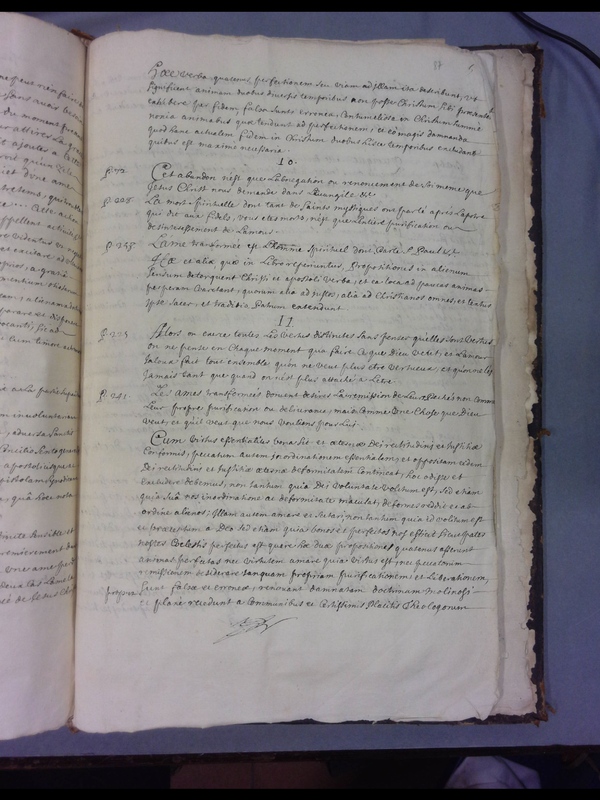 17
Hæc verba quatenus perfectionem seu viam ad illam ita describunt, ut
significent animam duobus diversis temporibus non posse Christum sibi præsentem
exhibere per fidem, falsa sunt erronea, Contumeliosa in Christum summe
noxia animabus quæ tendunt ad perfectionem, et eo magis damnanda
quod hanc actualem fidem in Christum duobus hisce temporibus excludant
quibus est maxime necessaria.
10.
Cet abandon n'est que L'abnegation ou renoncement de soi meme que
Jesus Christ nous demande dans L'evangile &c
La mort spirituelle dont tant de Saints mystiques ont parlé après L'apotre
qui dit aux fideles, vous etes morts, n'est que L'entiere purification ou
desinteressement de L'amour.
p. 245. L'ame transformée est L'homme spirituel dont parle S. Paul &c
Hæ et aliæ quæ in Libro reperiuntur, Propositiones in alienum
sensum detorquent Christi et apostoli verba, et ea loca ad paucas animas
perperam coarctant, quorum alia ad justos, alia ad Christianos omnes, et textus
ipse sacer, et traditio Patrum extendunt.
11
p. 225 Alors on exerce toutes les vertus distinctes sans penser qu'elles sont vertus
on ne pense en chaque moment que faire ce que Dieu veut, et L'amour
jaloux fait tout ensemble qu'on ne veut plus etre vertueux, et qu'on ne l'est
jamais tant que quand on n'est plus attaché a L'etre.
p. 241. Les ames transformées doivent desirer La remission de Leurs Pechés non comme
Leur propre purification ou delivrance, mais comme une chose que Dieu
veut, et qu'il veut que nous voulions pour lui.
Cum virtus essentialius sit æternæ Dei rectitudini et justitiæ
conformis, peccatum autem inordinationem essentialem, et oppositam eidem
Dei rectitudini et justitiæ æternæ deformitatem contineat, hoc odisse et
excludere debemus, non tantum quia Dei voluntate vetitum est, sed etiam
quia sua nos inordinatione ac deformitate maculat, deformes reddit et ab
ordine alienos; Illam autem amare et sectari non tantum quia id volitum est
et præceptum a Deo sed etiam quia bonos et perfectos nos efficit sicut pater
noster Celestis perfectus est quare hæ duæ propositiones quatenus asserunt
animas perfectas nec virtutem amare quia virtus est, nec peccatorum
remissionem desiderare tanquam propriam purificationem, et Liberationem
propriam sunt falsæ et erroneæ, renovant damnatam doctrinam molinosi
et plane recedunt a communibus et certissimis Placitis Theologorum